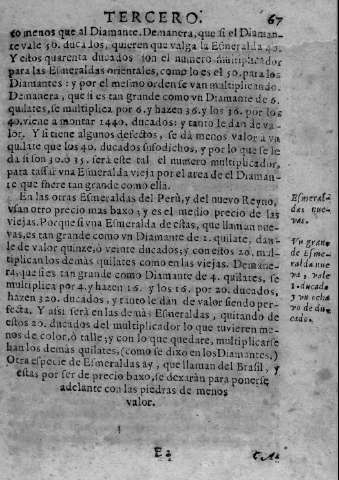 TERCERO. 67
to menos que al Diamante. Demanera, que si el Diaman-
te vale 50. ducados, quieren que valga la Esmeralda 40.
Y estos quarenta ducados son el numero multiplicador
para las Esmeraldas orientales, como lo es el 50. para los
Diamantes: y por el mesmo orden se van multiplicando.
Demanera, que si es tan grande como vn Diamante de 6.
quilates, se multiplica por 6. y hazen 36. y los 36. por los
40. viene a montar 1440. ducados: y tanto le dan de va-
lor. Y si tiene algunos defectos, se dà menos valor a vn
quilate que los 40. ducados susodichos, y por lo que se le
da si son 30. ò 15. serà este tal el numero multiplicador,
para tassar vna Esmeralda vieja por el area de el Diaman-
te que fuere tan grande como ella.
En las otras Esmeraldas del Perù, y del nuevo Reyno,
vsan otro precio mas baxo; y es el medio precio de las
viejas. Porque si vna Esmeralda de estas, que llaman nue-
vas, es tan grande como vn Diamante de 1. quilate, dan-
le de valor quinze, ò veinte ducados; y con estos 20. mul-
tiplican los demàs quilates como en las viejas. Demane-
ra, que si es tan grande como Diamante de 4. quilates, se
multiplica por 4. y hazen 16. y los 16. por 20. ducados,
hazen 320. ducados, y tanto le dan de valor siendo per-
fecta. Y assi serà en las demàs Esmeraldas, quitando de
estos 20. ducados del multiplicador lo que tuvieren me-
nos de color, ò talle; y con lo que quedare, multiplicarse
han los demàs quilates, (como se dixo en los Diamantes.)
Otra especie de Esmeraldas ay, que llaman del Brasil, y
estas por ser de precio baxo, se dexaràn para ponerse
adelante con las piedras de menos
valor.
Esmeral-
das nue-
vas.
Vn grano
de Esme-
ralda nue-
va, vale
1. ducado
y vn ocha
vo de du-
cado.
E 2